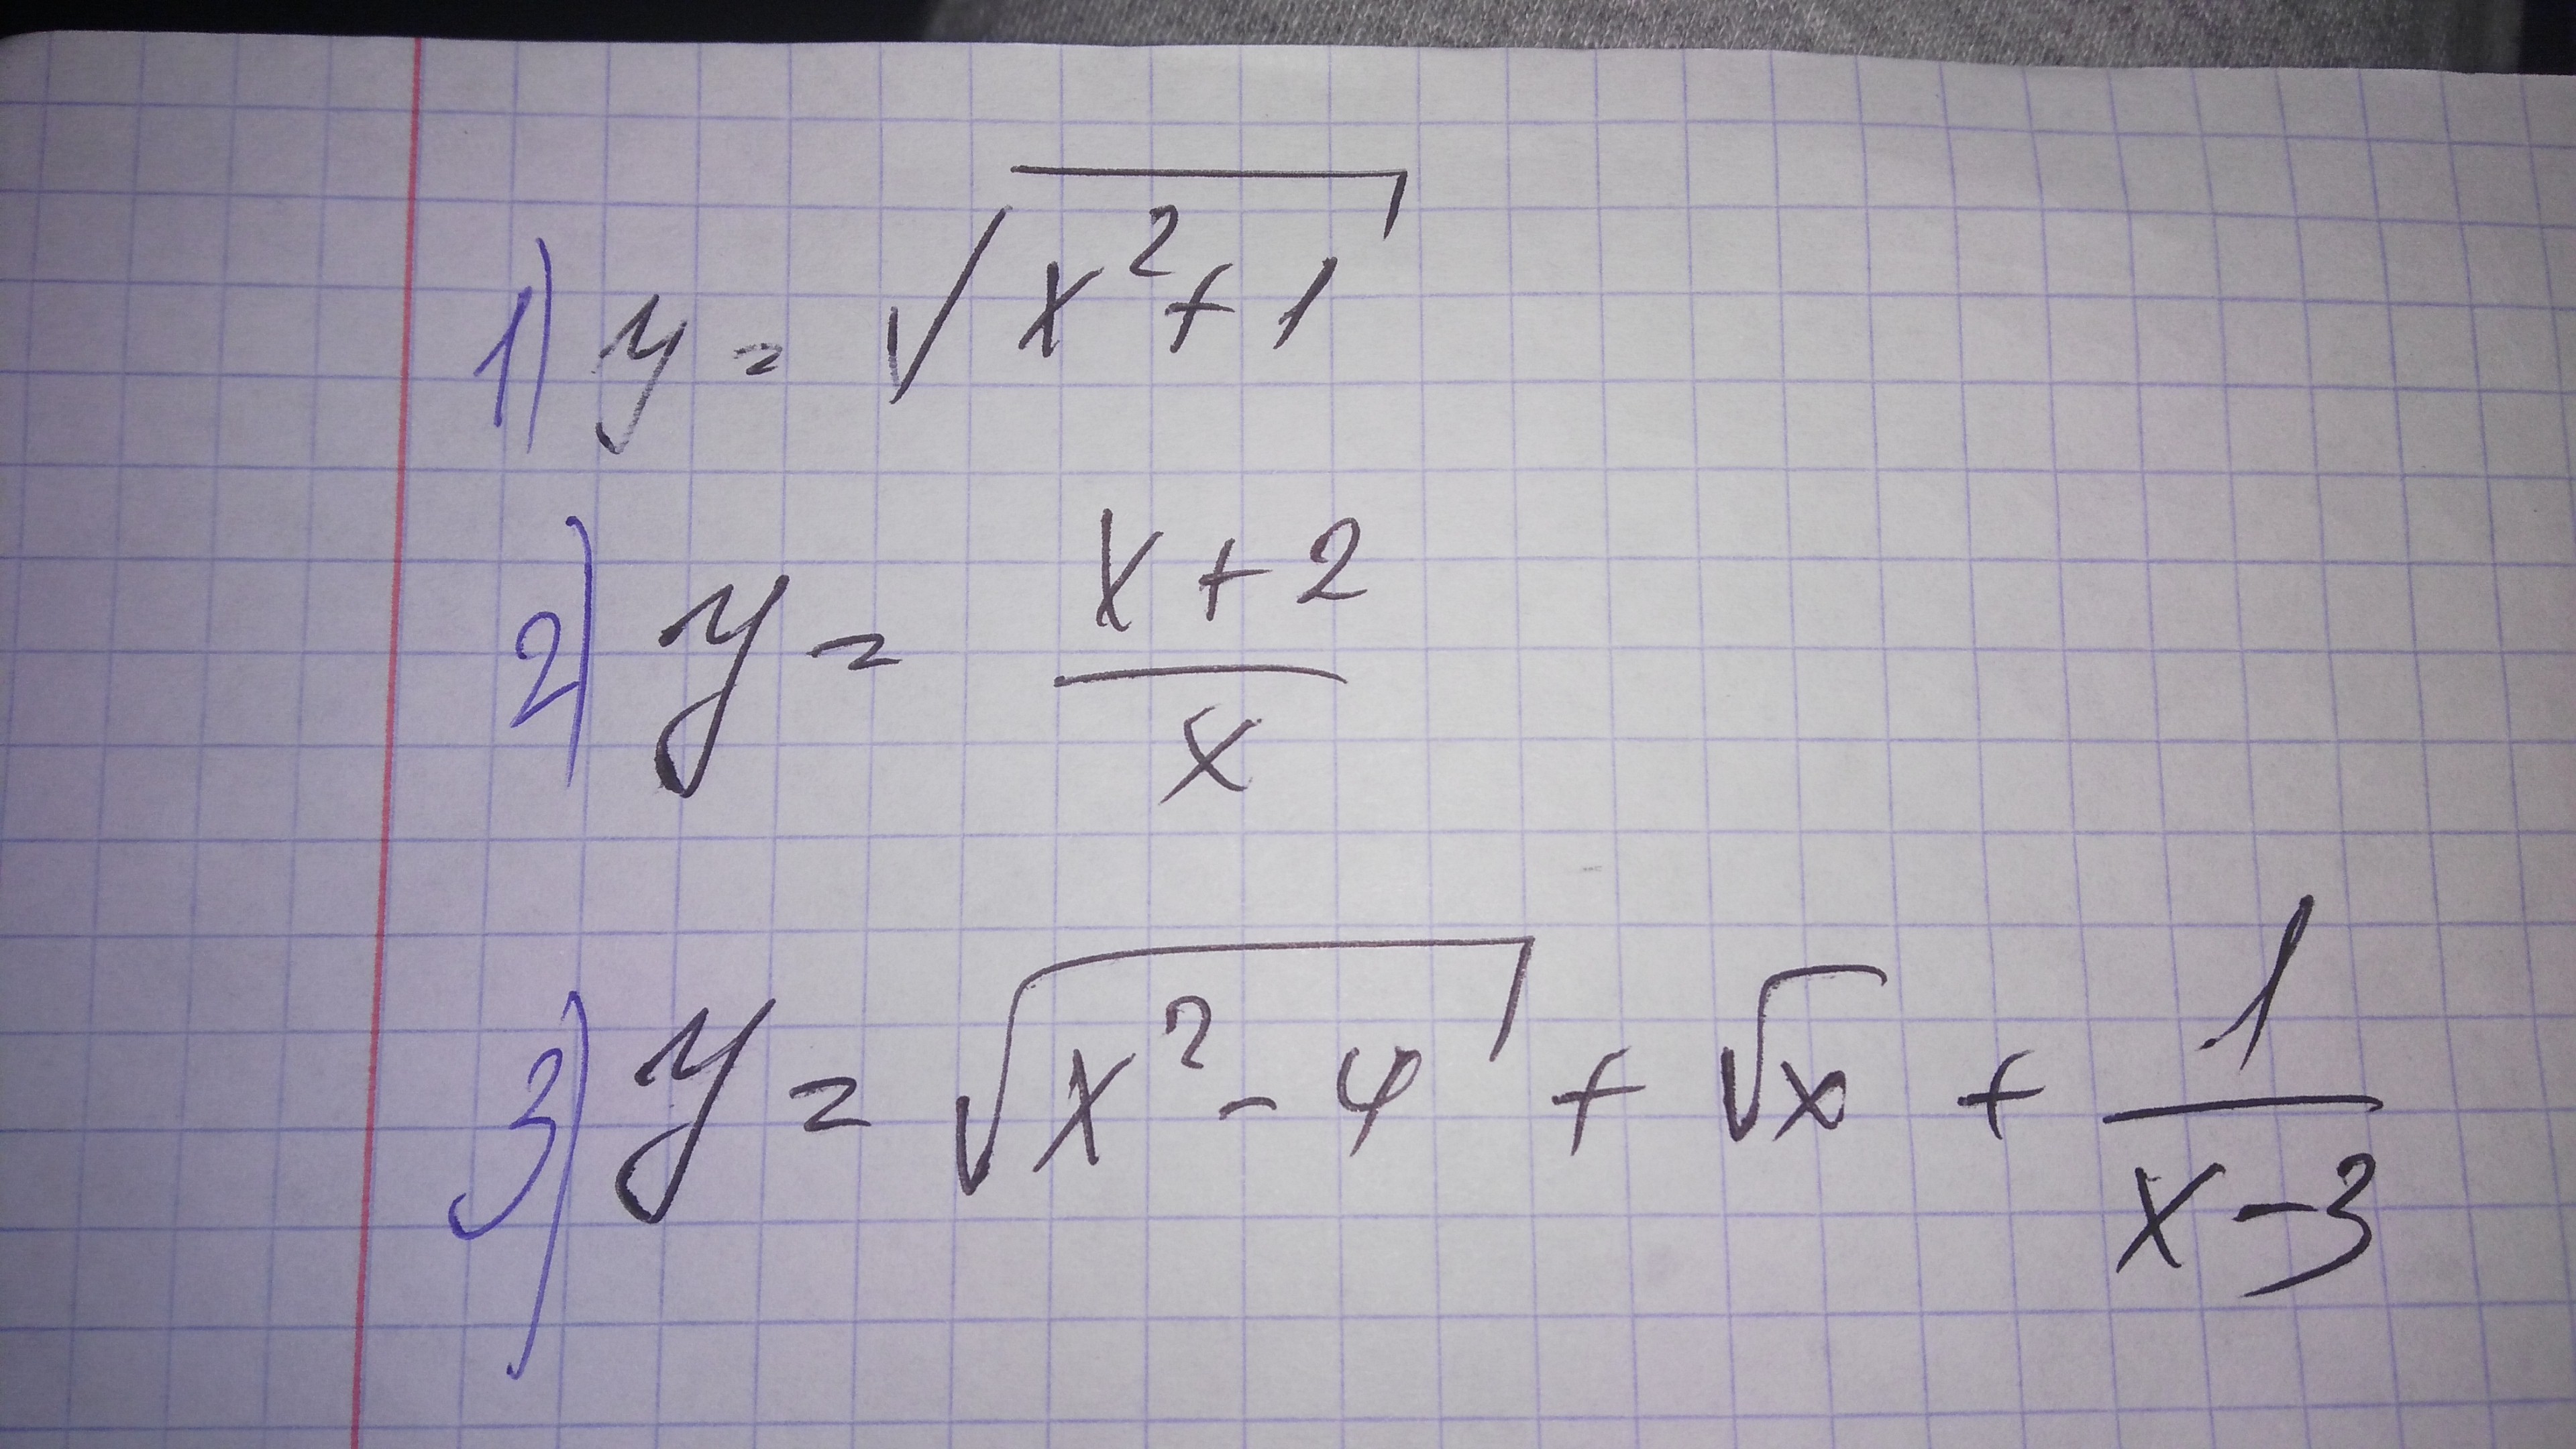 1) y = √(x² + 1)
2) y = (x + 2)/x
3) y = √(x² - 4) + √x + 1/(x - 3)